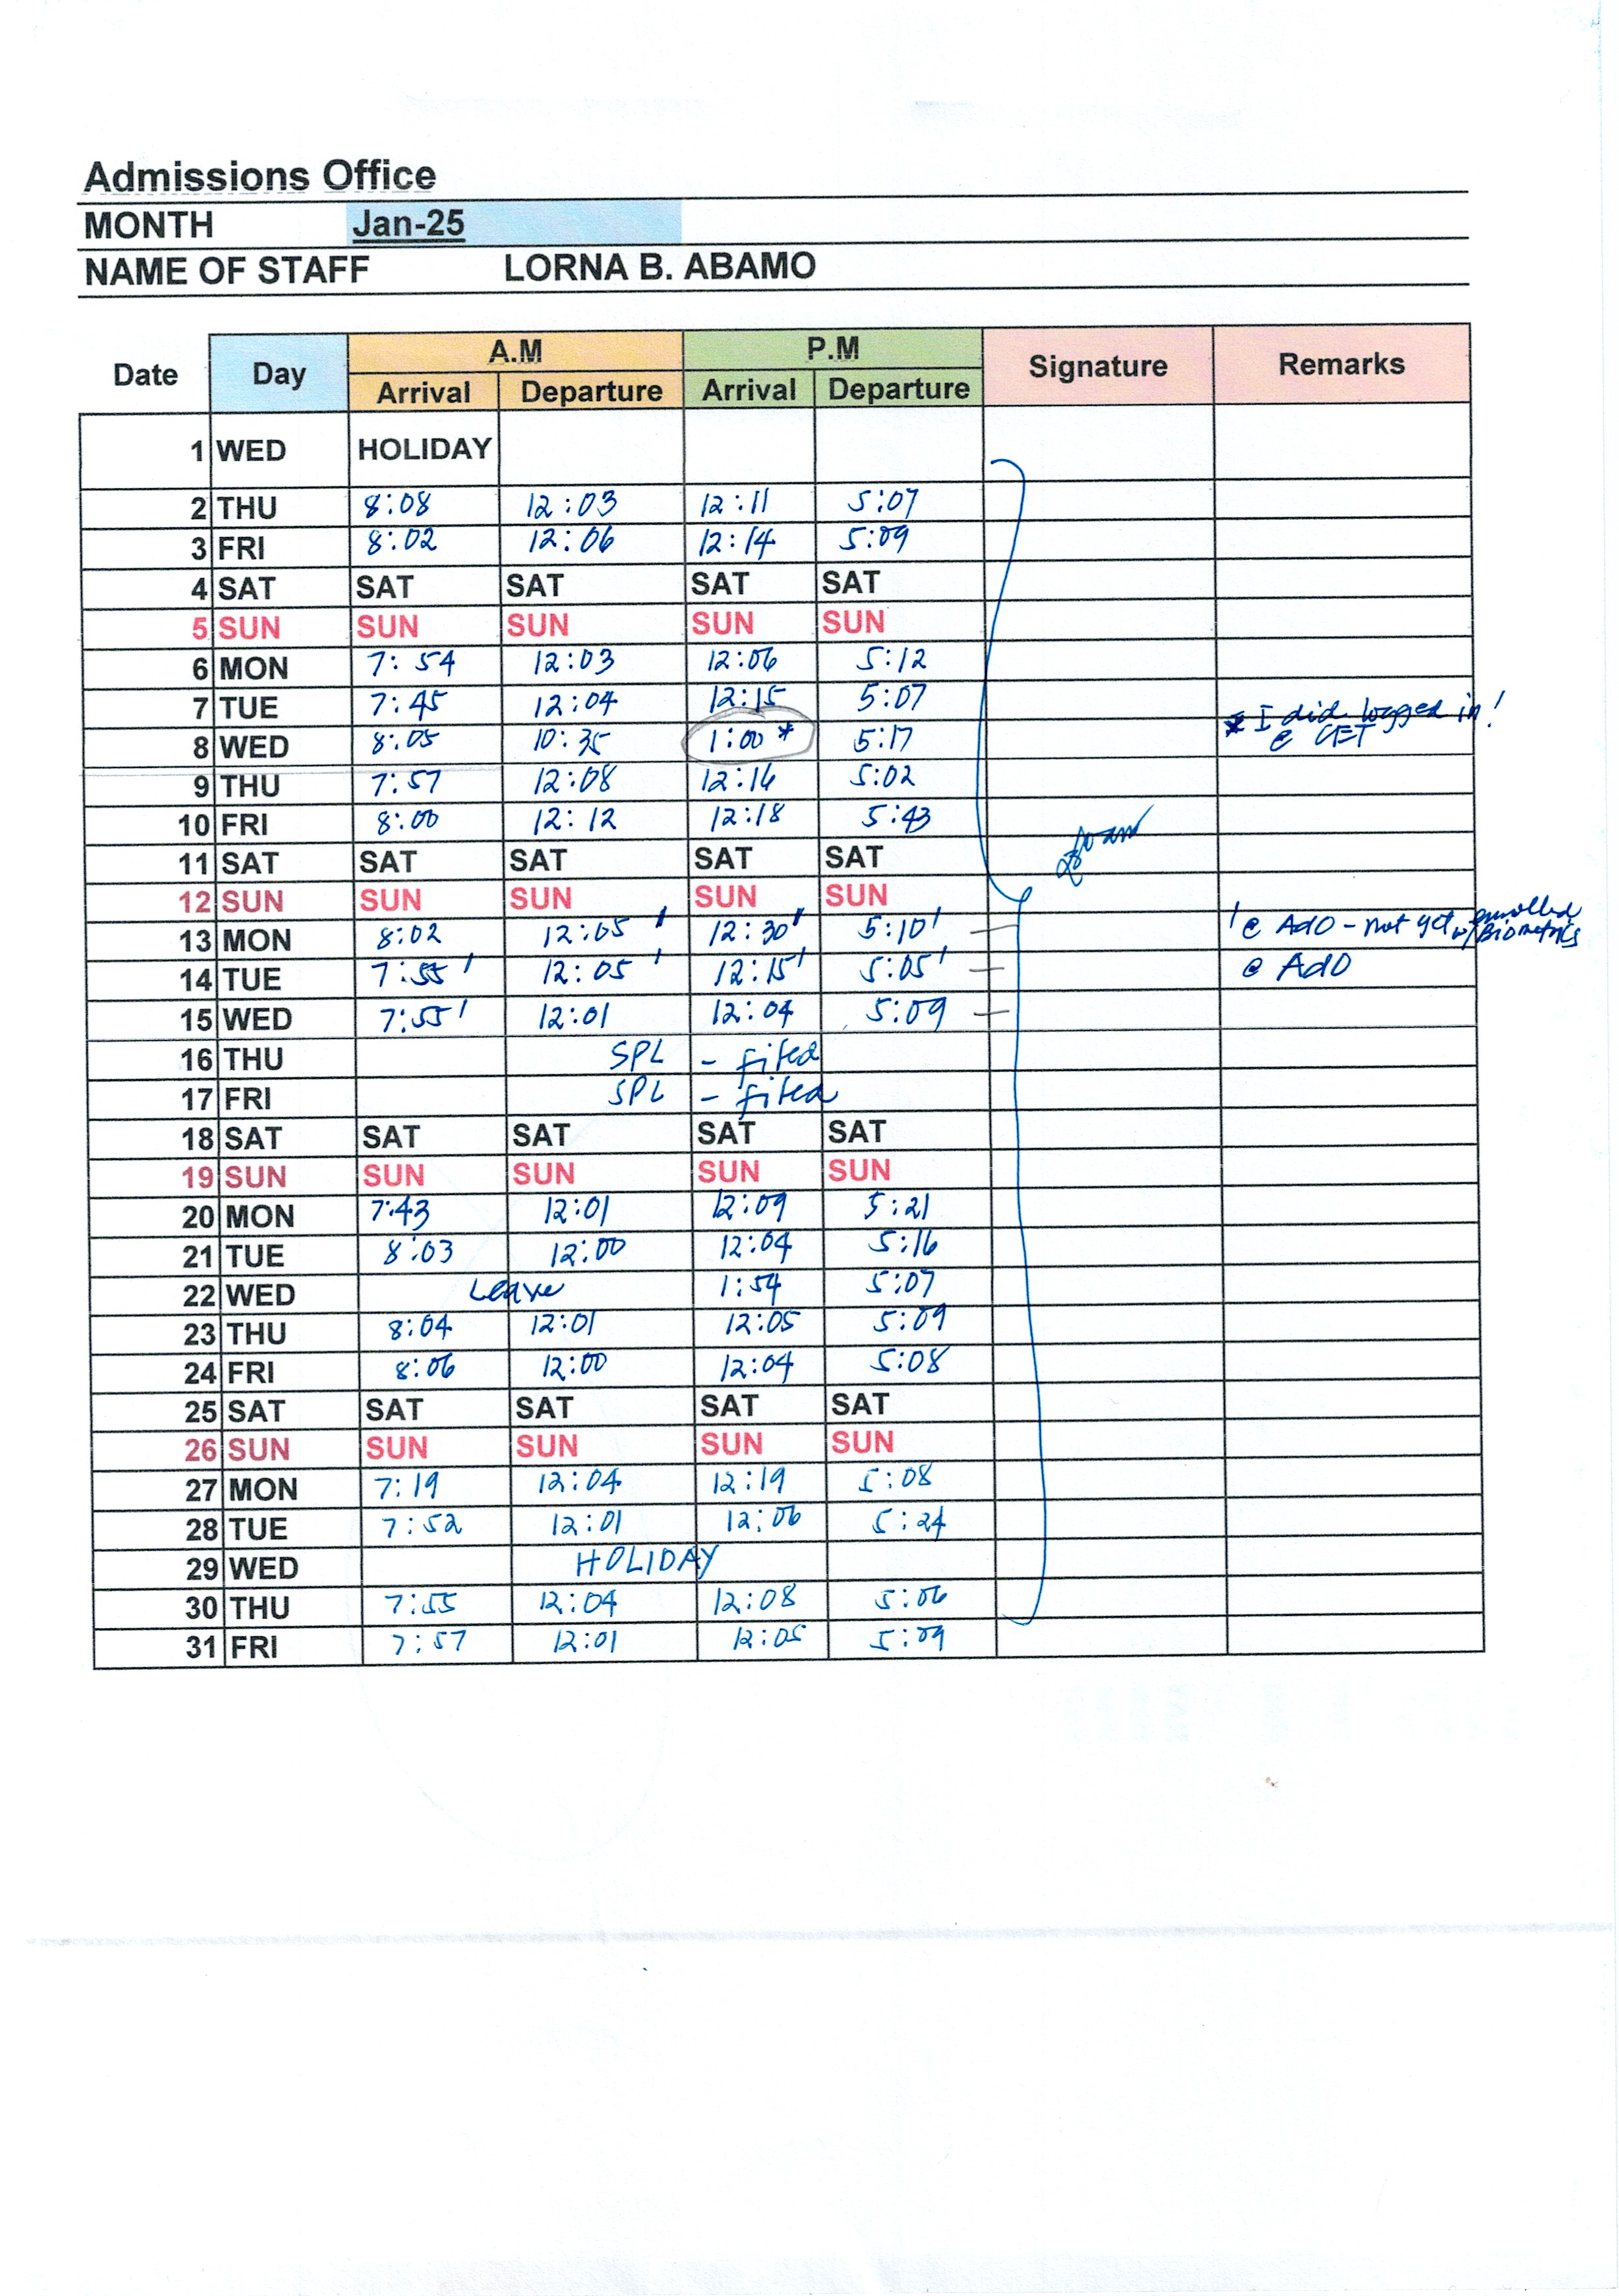 Admissions Office
MONTH Jan-25
NAME OF STAFF LORNA B. ABAMO
Date Day A.M P.M Signature Remarks
Arrival Departure Arrival Departure
1 WED HOLIDAY
2 THU 8:08 12:03 12:11 5:07
3 FRI 8:02 12:06 12:14 5:09
4 SAT SAT SAT SAT SAT
5 SUN SUN SUN SUN SUN
6 MON 7:54 12:03 12:06 5:12
7 TUE 7:45 12:04 12:15 5:07
* I did logged in!
8 WED 8:05 10:35 1:00 * 5:17 @ CET
9 THU 7:57 12:08 12:16 5:02
10 FRI 8:00 12:12 12:18 5:43
11 SAT SAT SAT SAT SAT
12 SUN SUN SUN SUN SUN
13 MON 8:02 12:05 ' 12:30 ' 5:10 ' ' @ AdO - not yet enrolled w/ Biometrics
14 TUE 7:55 ' 12:05 ' 12:15 ' 5:05 ' @ AdO
15 WED 7:55 ' 12:01 12:04 5:09
16 THU SPL - filed
17 FRI SPL - filed
18 SAT SAT SAT SAT SAT
19 SUN SUN SUN SUN SUN
20 MON 7:43 12:01 12:09 5:21
21 TUE 8:03 12:00 12:04 5:16
22 WED Leave 1:54 5:07
23 THU 8:04 12:01 12:05 5:09
24 FRI 8:06 12:00 12:04 5:08
25 SAT SAT SAT SAT SAT
26 SUN SUN SUN SUN SUN
27 MON 7:19 12:04 12:19 5:08
28 TUE 7:52 12:01 12:06 5:24
29 WED HOLIDAY
30 THU 7:55 12:04 12:08 5:06
31 FRI 7:57 12:01 12:05 5:09